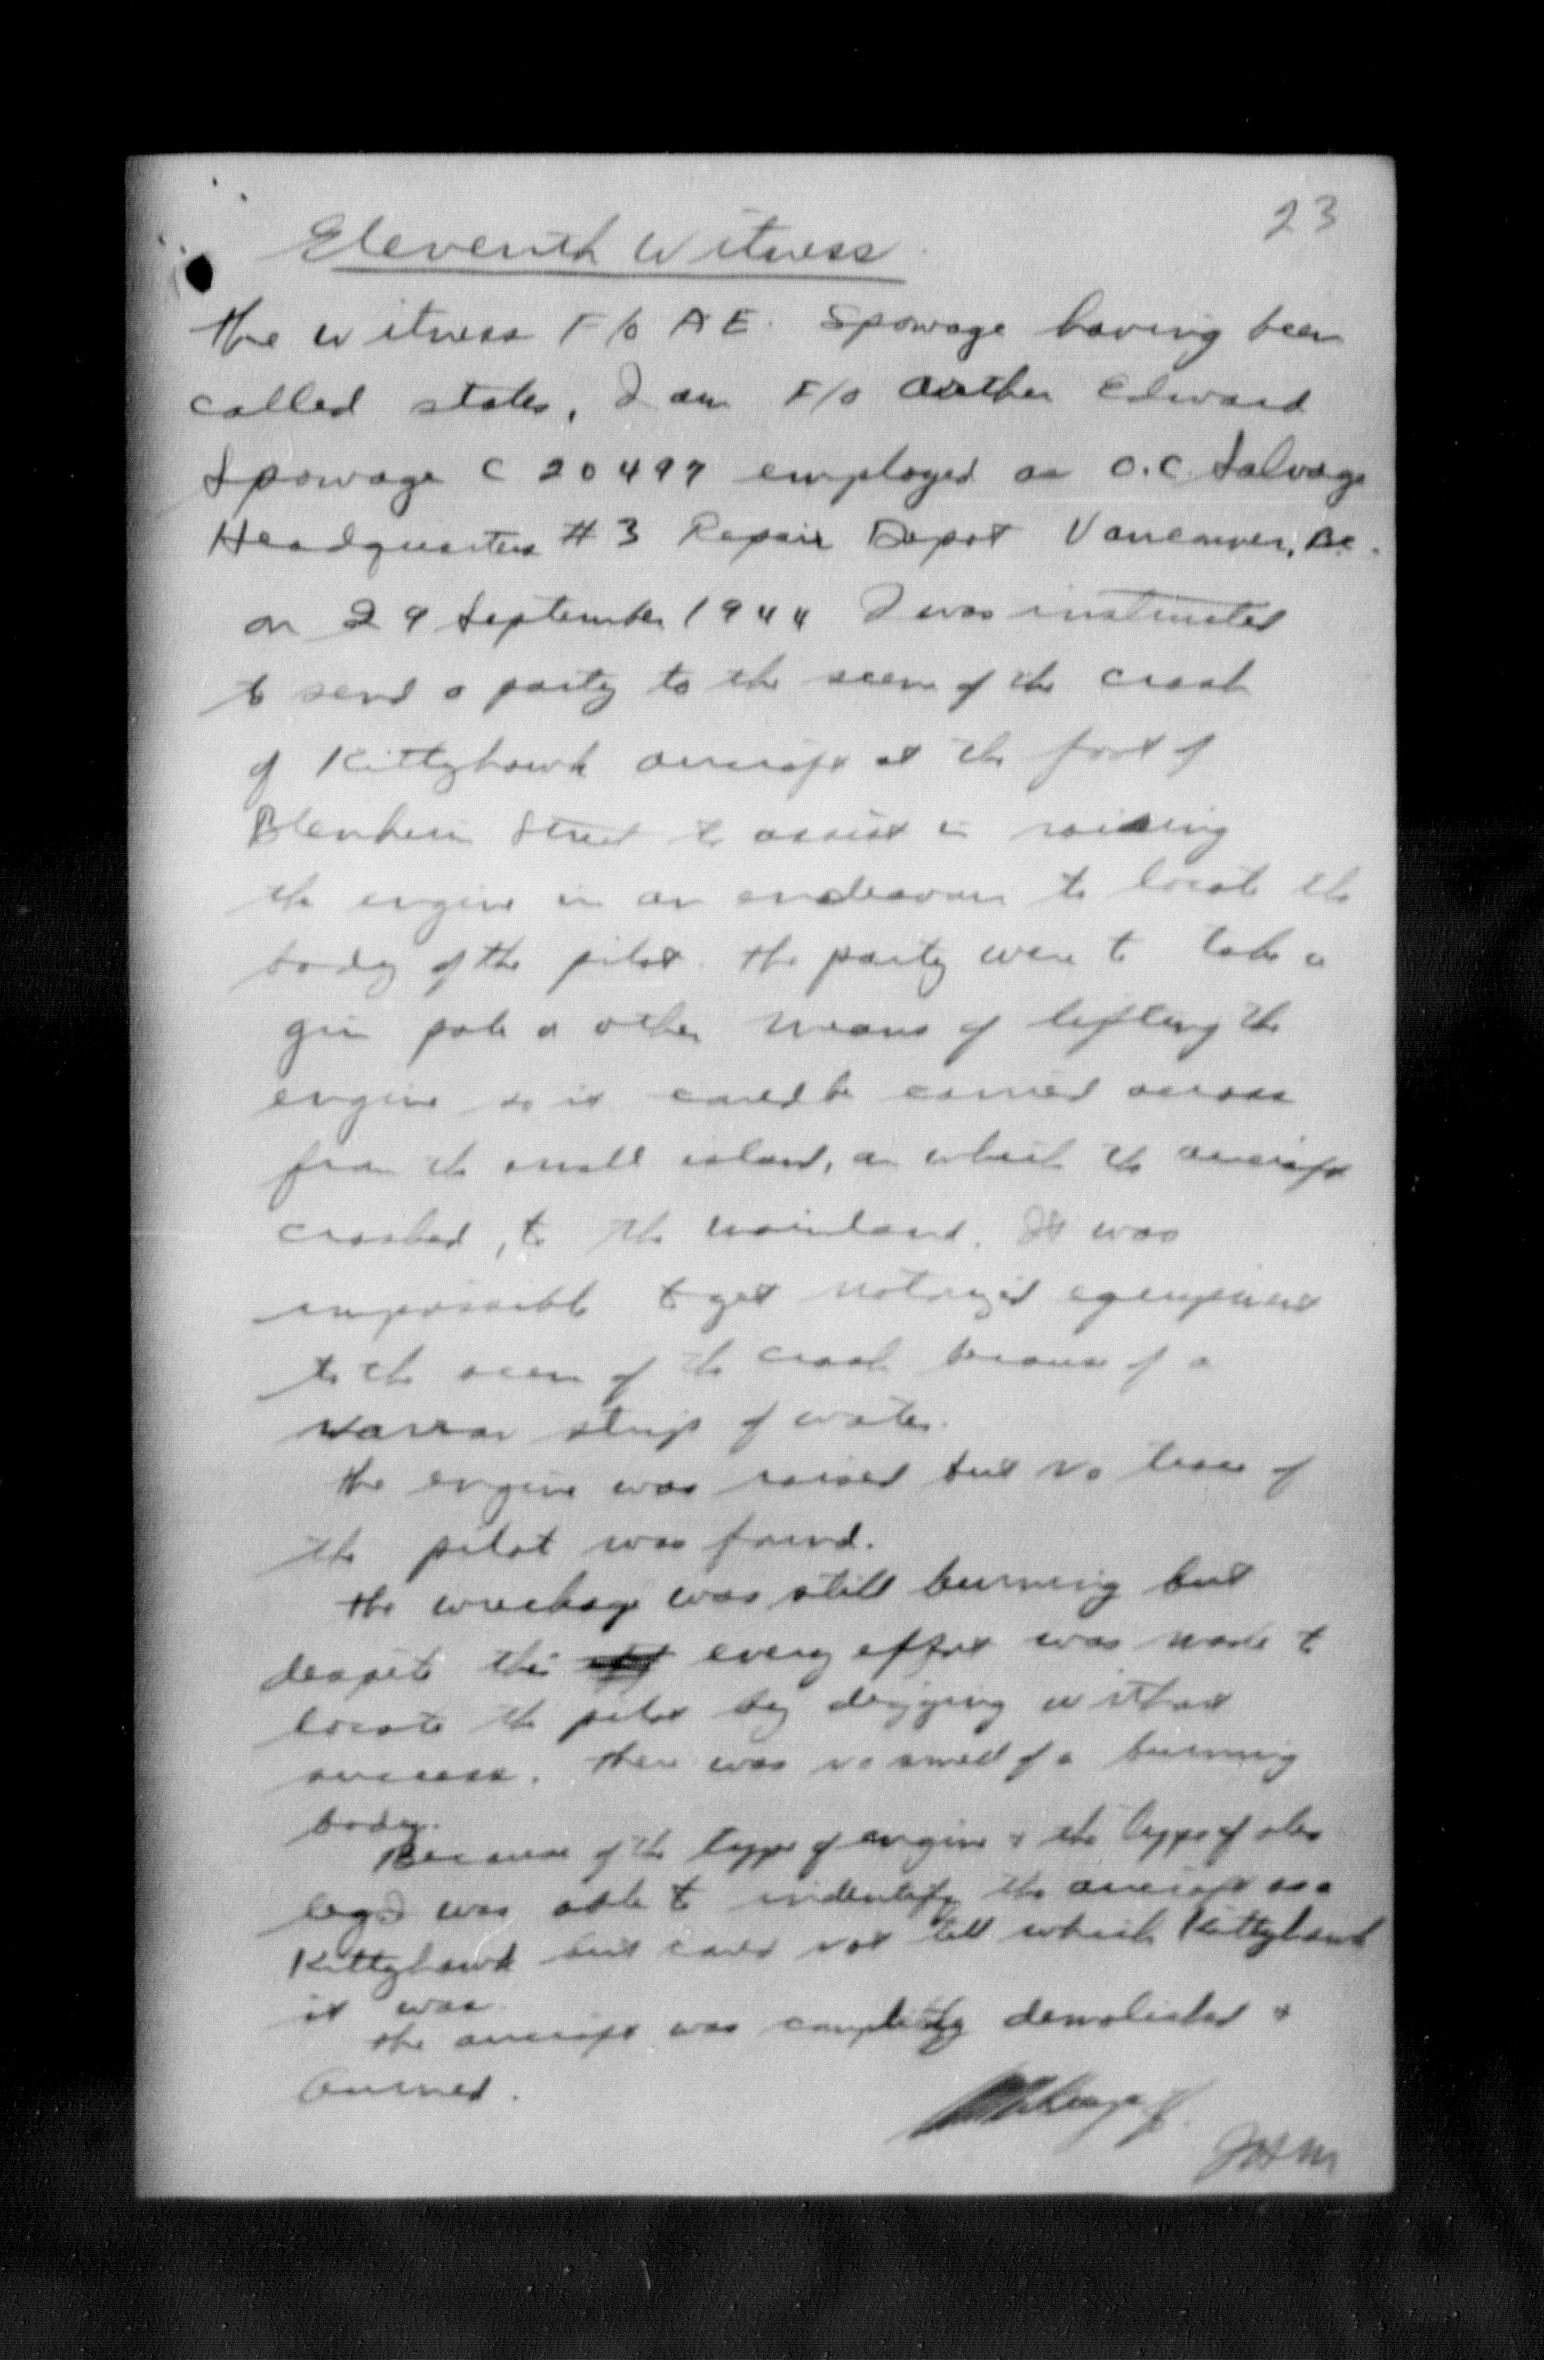 23
Eleventh Witness
The witness F/O A E. Spowage having been
called states, I am F/O Arthur Edward
Spowage C 20497 employed as O.C. Salvage
Headquarters #3 Repair Depot Vancouver, BC.
on 29 September 1944 I was instructed
to send a party to the scene of the crash
of Kittyhawk aircraft at the foot of
Blenheim Street to assist in raising
the engine in an endeavour to locate the
body of the pilot. The party were to take a
gin pole or other means of lifting the
engine so it could be carried across
from the small island, on which the aircraft
crashed, to the mainland. It was
impossible to get motorized equipment
to the scene of the crash because of a
narrow strip of water.
The engine was raised but no trace of
the pilot was found.
The wreckage was still burning but
despite this every effort was made to
locate the pilot by digging without
success. There was no smell of a burning
body.
Because of the type of engine & the type of oleo
leg I was able to indentify the aircraft as a
Kittyhawk but could not tell which Kittyhawk
it was.
The aircraft was completely demolished &
burned.
JHM